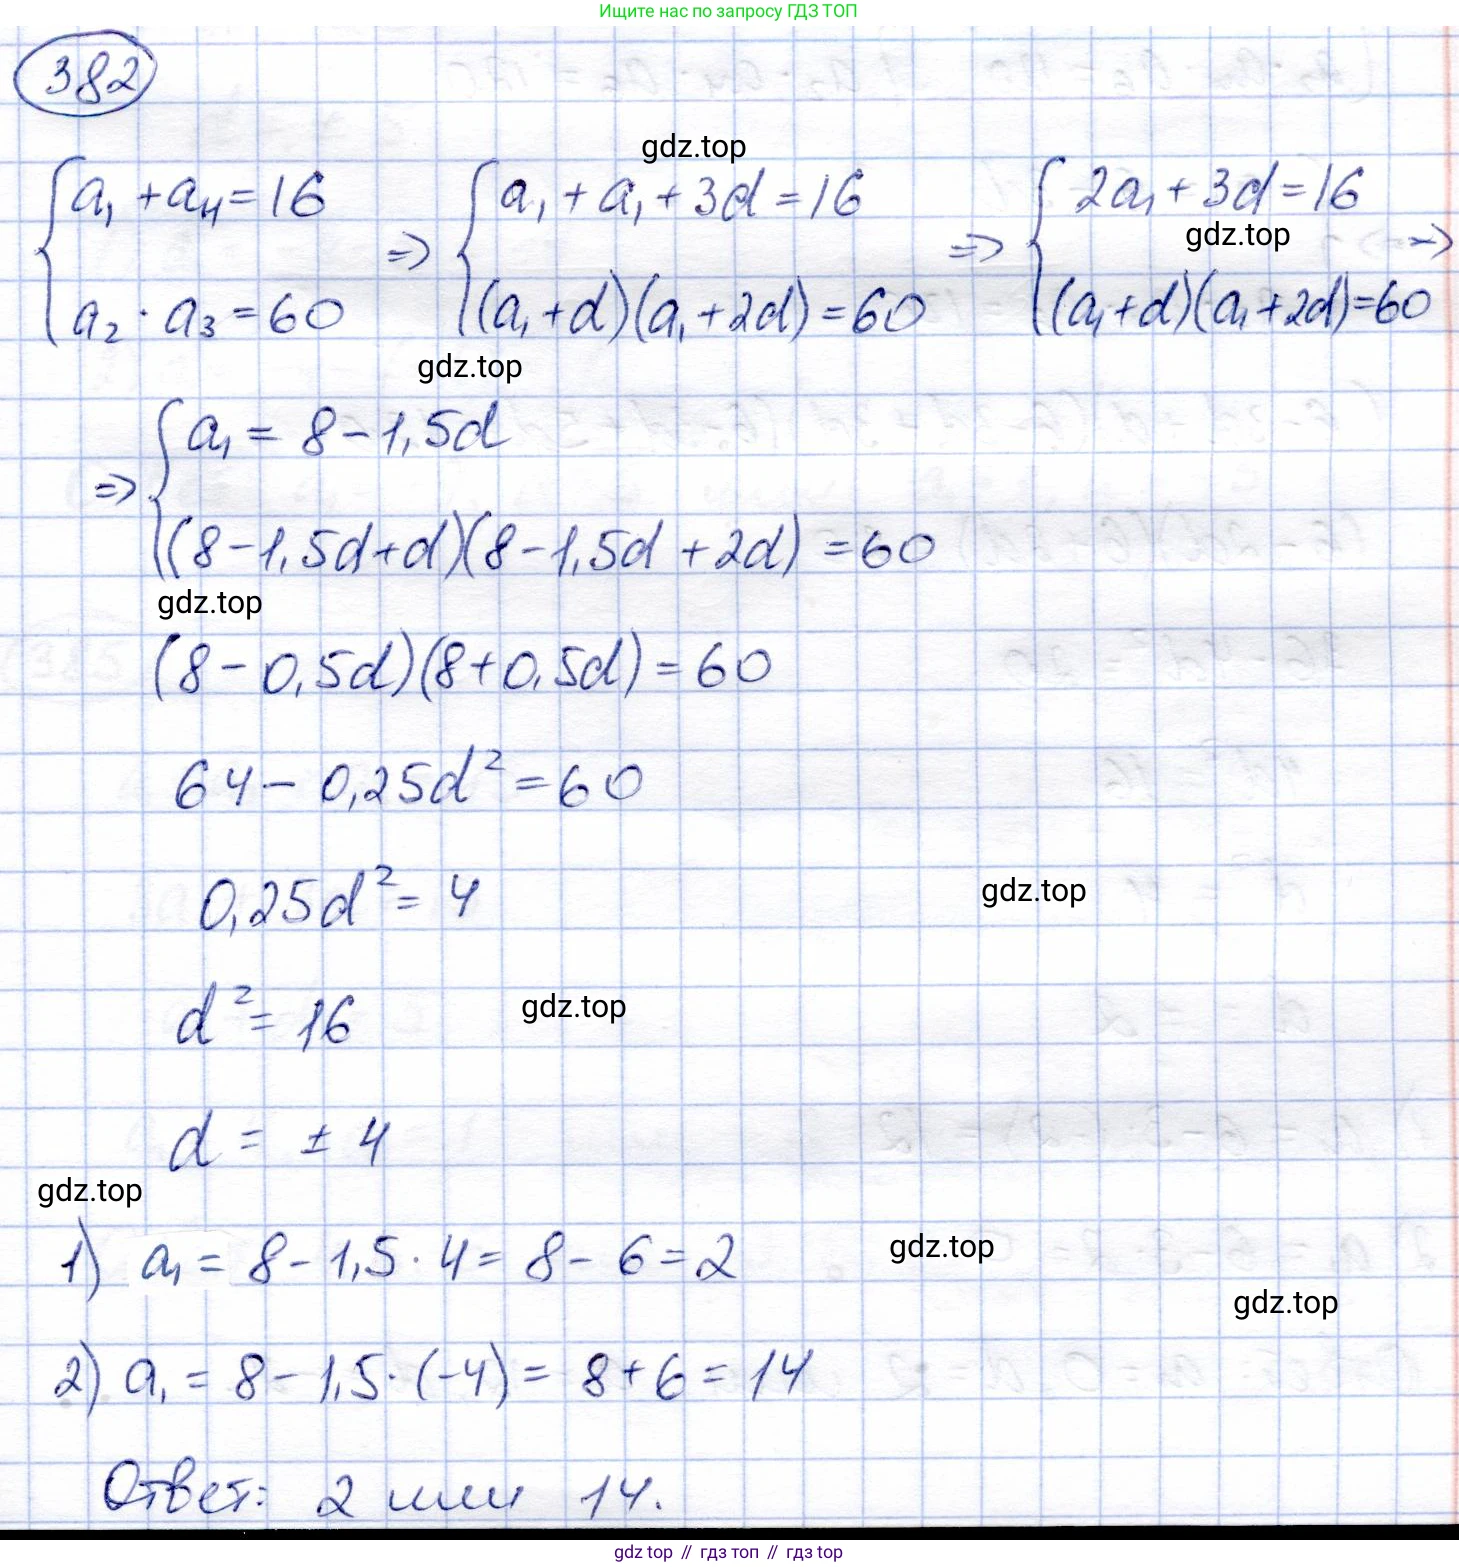 Ищите нас по запросу ГДЗ ТОП
382
{ a₁ + a₄ = 16 => { a₁ + a₁ + 3d = 16 => { 2a₁ + 3d = 16 =>
a₂ · a₃ = 60 (a₁ + d)(a₁ + 2d) = 60 (a₁ + d)(a₁ + 2d) = 60
gdz.top
gdz.top
gdz.top
=> { a₁ = 8 - 1,5d
(8 - 1,5d + d)(8 - 1,5d + 2d) = 60
gdz.top
(8 - 0,5d)(8 + 0,5d) = 60
64 - 0,25d² = 60
0,25d² = 4
gdz.top
d² = 16
gdz.top
d = ± 4
gdz.top
1) a₁ = 8 - 1,5 · 4 = 8 - 6 = 2
gdz.top
gdz.top
2) a₁ = 8 - 1,5 · (-4) = 8 + 6 = 14
Ответ: 2 или 14.
gdz top // гдз топ // гдз top